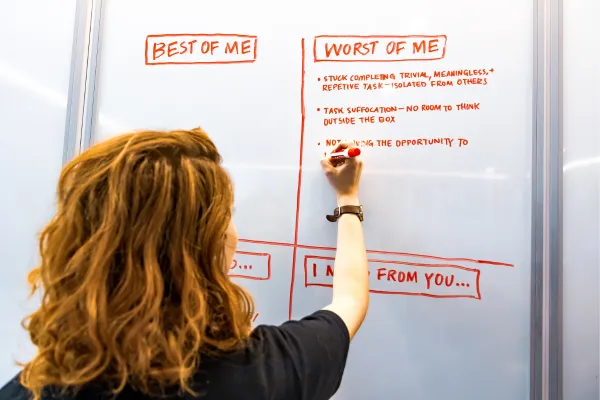 BEST OF ME
WORST OF ME
• STUCK COMPLETING TRIVIAL, MEANINGLESS, +
REPETIVE TASK—ISOLATED FROM OTHERS
• TASK SUFFOCATION—NO ROOM TO THINK
OUTSIDE THE BOX
• NOT THE OPPORTUNITY TO
I FROM YOU...